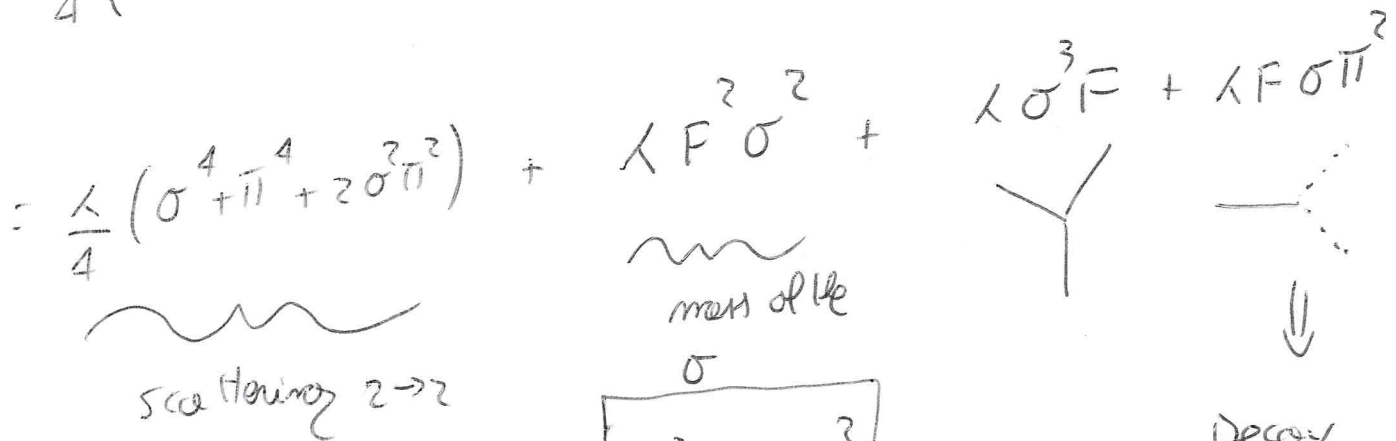 4 (
= λ/4 (σ⁴ + π⁴ + 2σ²π²) + λF²σ² + λσ³F + λFσπ²
scattering 2→2
mass of the
σ
2 2
Decay